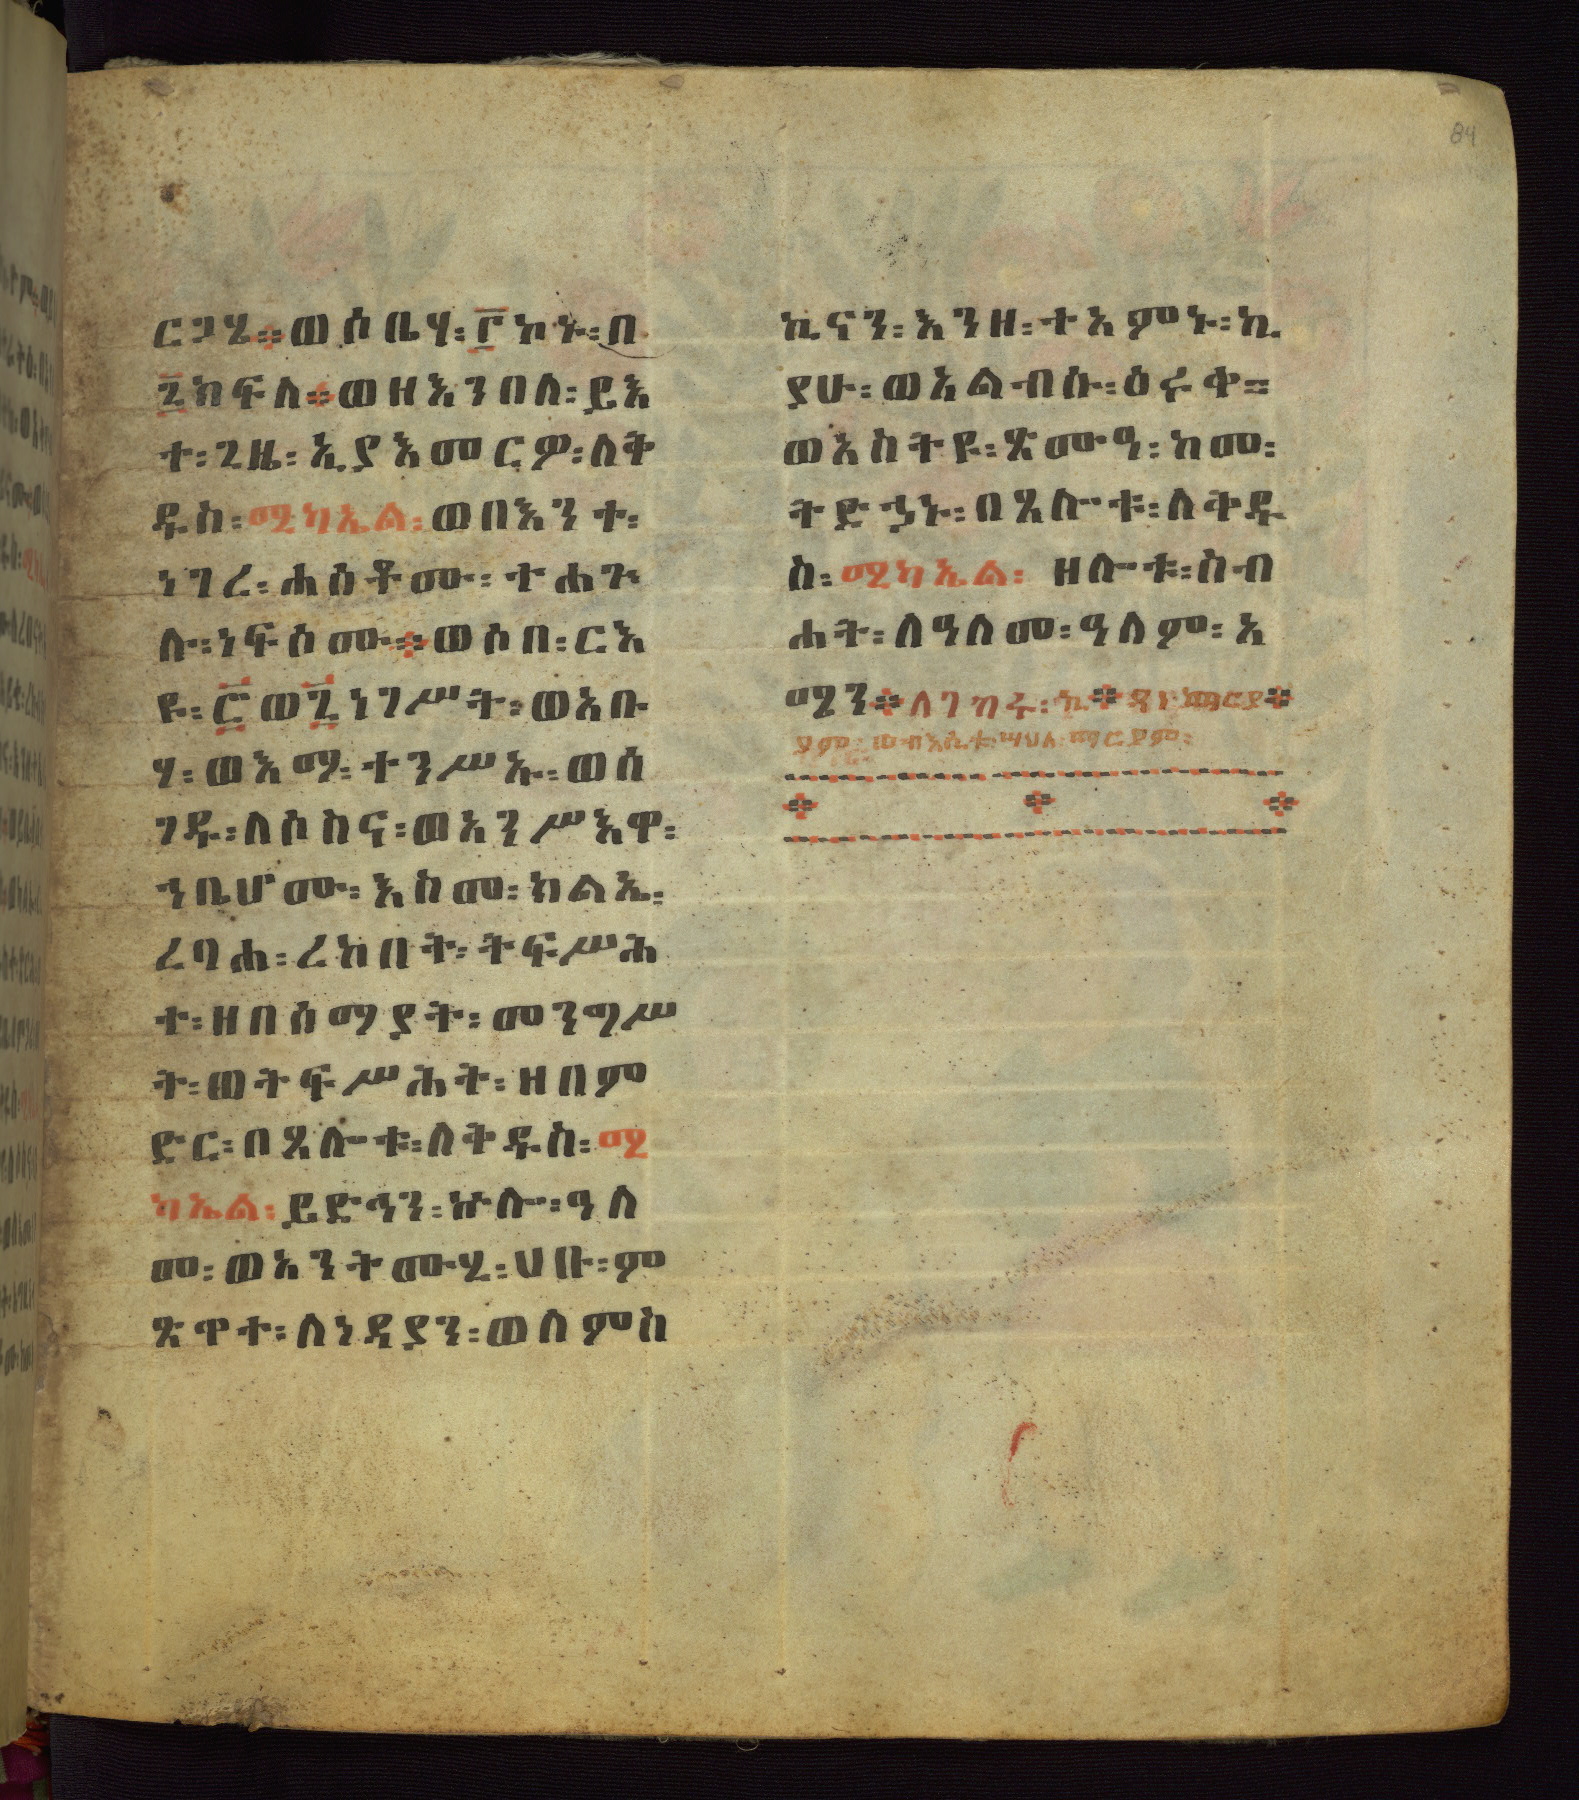 84
ርጋሄ፨ወሶቤሃ፡፫ኮኑ፡በ
፯ክፍለ፨ወዘእንበለ፡ይእ
ተ፡ጊዜ፡ኢያእመርዎ፡ለቅ
ዱስ፡ሚካኤል፡ወበእንተ፡
ነገረ፡ሐሰቶሙ፡ተሐጕ
ሉ፡ነፍሶሙ፨ወሶበ፡ርእ
ዩ፡፫ወ፯ነገሥት፡ወአቡ
ሃ፡ወእማ፡ተንሥኡ፡ወሰ
ገዱ፡ለሶስና፡ወአንሥእዋ፡
ንቤሆሙ፡እስመ፡ክልኤ፡
ረባሐ፡ረከበት፡ትፍሥሕ
ተ፡ዘበሰማያት፡መንግሥ
ት፡ወትፍሥሕት፡ዘበም
ድር፡በጸሎቱ፡ለቅዱስ፡ሚ
ካኤል፡ይድኅን፡ኵሉ፡ዓለ
መ፡ወአንትሙሂ፡ሀቡ፡ም
ጽዋተ፡ለነዳያን፡ወለምስ
ኪናን፡እንዘ፡ተአምኑ፡ኪ
ያሁ፡ወአልብሱ፡ዕሩቀ፡፡
ወአስትዩ፡ጽሙዓ፡ከመ፡
ትድኃኑ፡በጸሎቱ፡ለቅዱ
ስ፡ሚካኤል፡ ዘሎቱ፡ስብ
ሐት፡ለዓለመ፡ዓለም፡አ
ሜን፨ለገብሩ፡